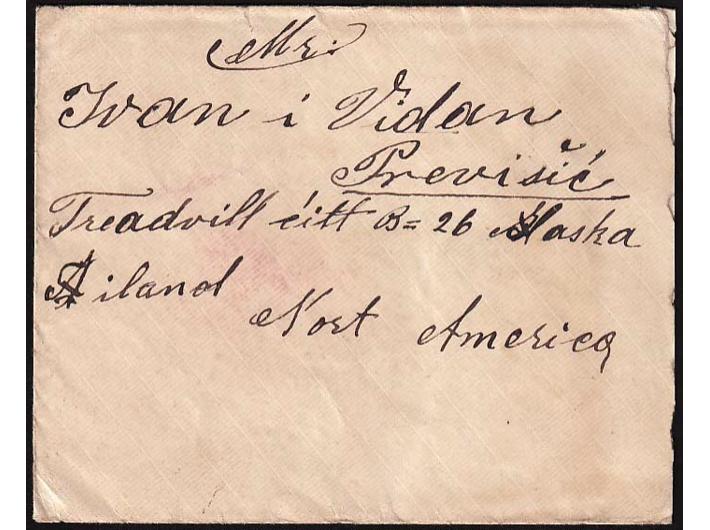 Mr:
Ivan i Vidan
Previšić
Treadvill ćitt B= 26 Alaska
iland
Nort America